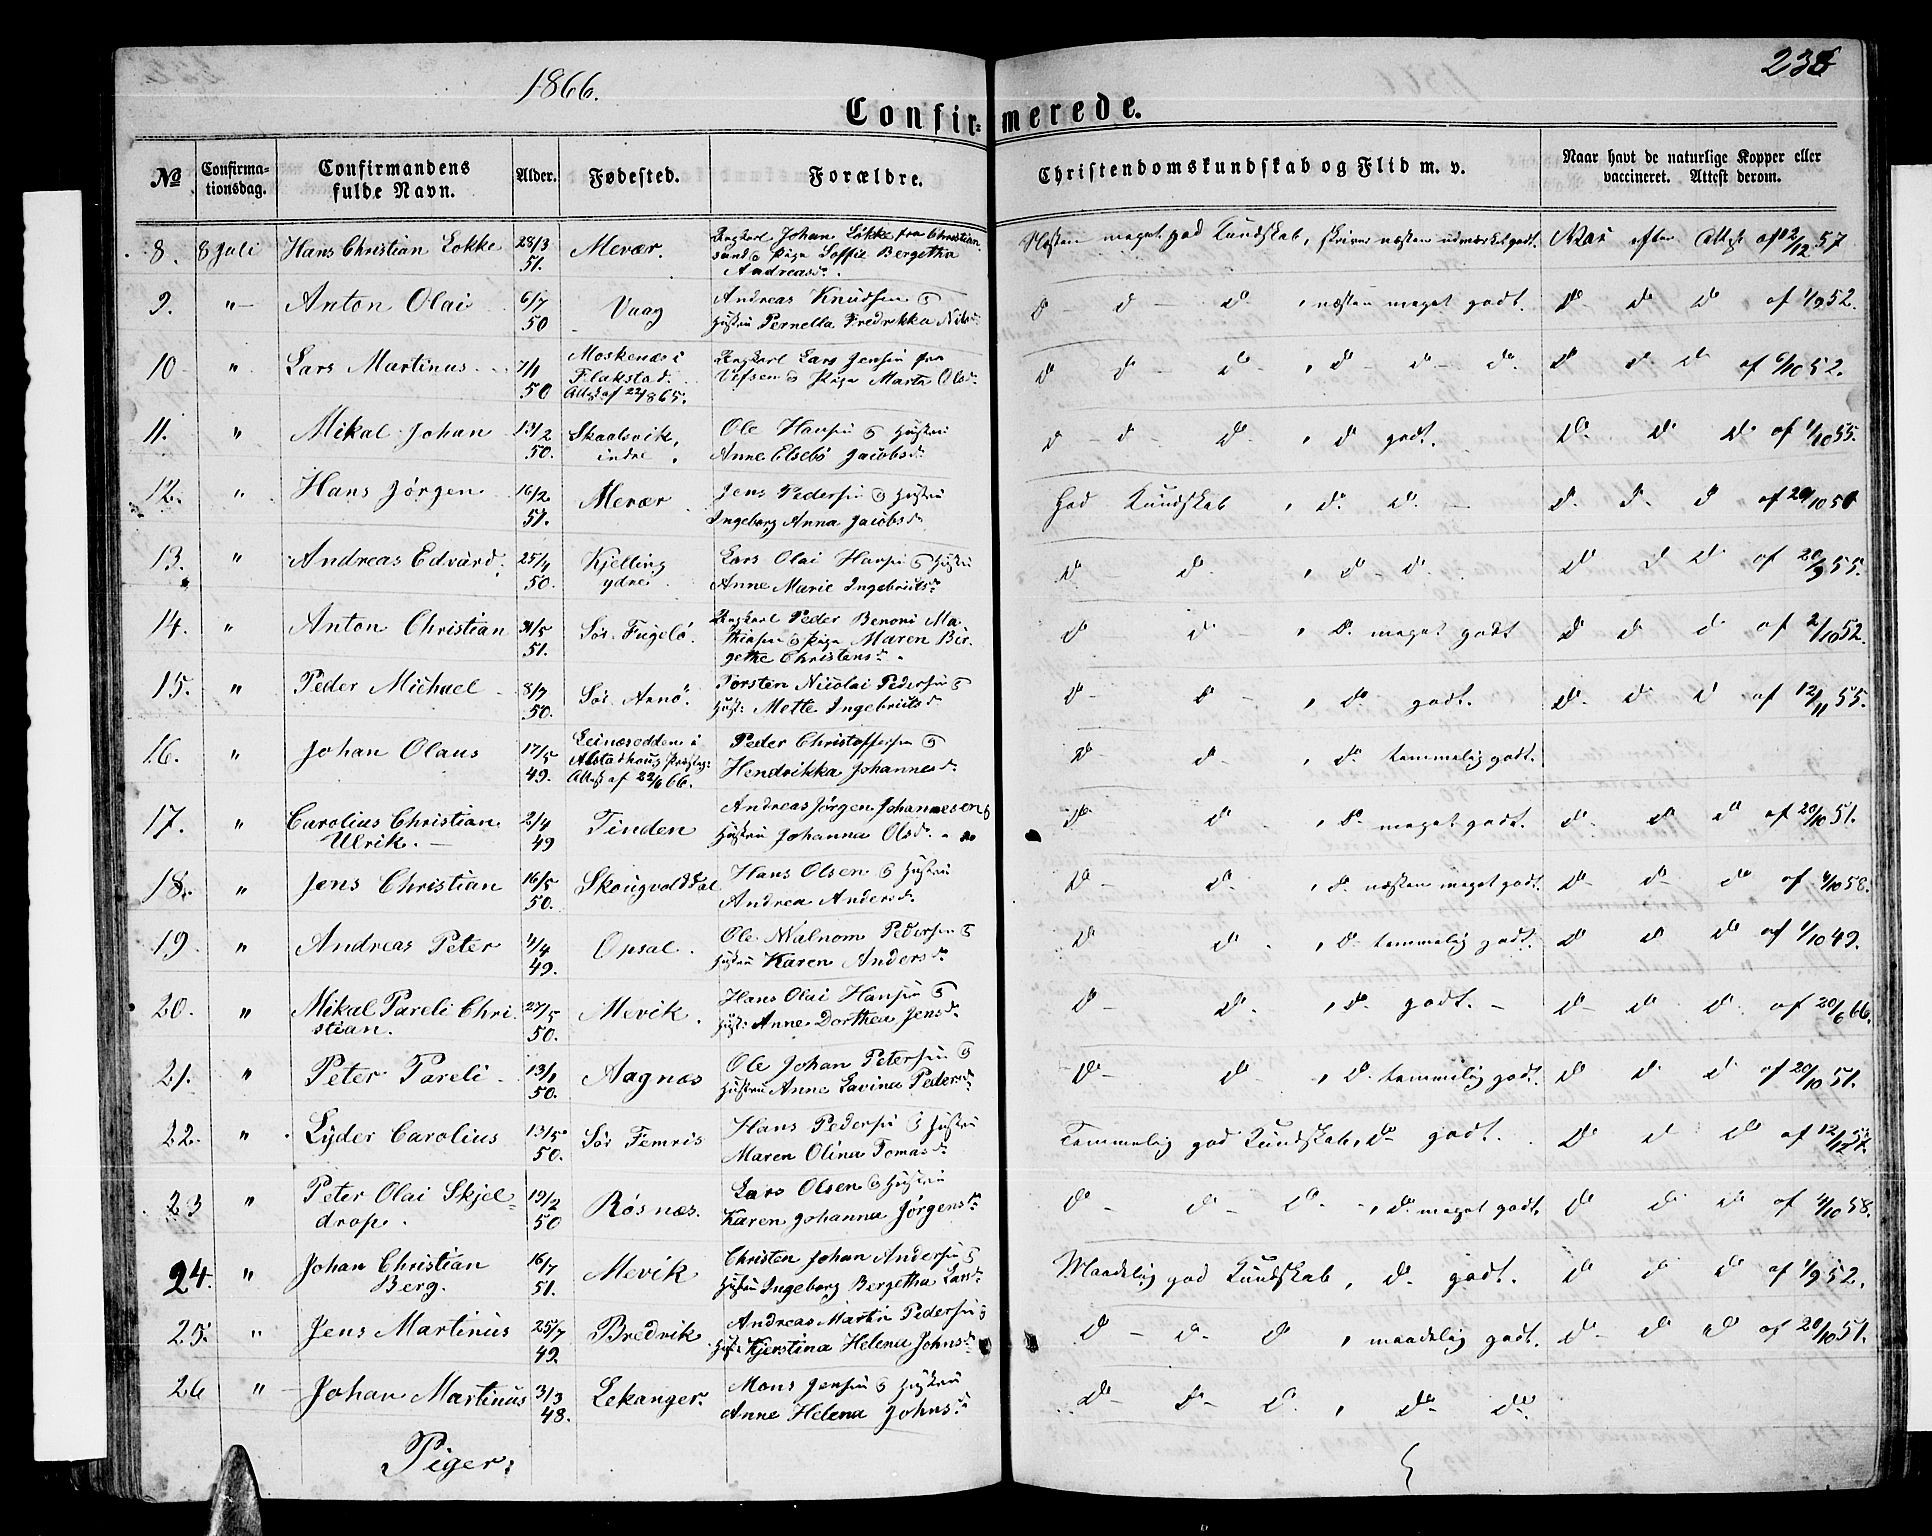 1866.
238
Confir-merede.
No Confirmationsdag. Confirmandens fulde Navn. Alder. Fødested. Forældre. Christendomskundskab og Flid m. v. Naar havt de naturlige Kopper eller vaccineret. Attest derom.
8. 8 Juli Hans Christian Lokke 28/3 51. Mevær. Ungkarl Johan Løkke fra Christiansund & Pige Soffie Bergetha Andreasd. Næsten meget god Kundskab, skriver næsten udmærket godt. Vac. efter Attest af 12/12 57
9. " Anton Olai 6/7 50 Vaag Andreas Knudsen & Hustru Pernella Fredrikka Nilsd. d d d, næsten meget godt. d d d af 1/9 52.
10 " Lars Martinus 7/1 50 Moskenæs i Flakstad. Attest af 22/4 865. Ungkarl Lars Jensen fra Vefsen & Pige Marta Olsd. d d d, d d d. d d d af 6/10 52.
11. " Mikal Johan 13/2 50. Skaalsvik, indre Ole Hansen & Hustru Anne Elsebø Jacobsd. d d d, d godt. d d d af 1/10 55.
12. " Hans Jørgen 16/2 51. Mevær Jens Pedersen & Hustru Ingeborg Anna Jacobsd. God Kundskab, d. d. d. d. d af 20/10 51
13. " Andreas Edvard 25/4 50. Kjelling ydre Lars Olai Hansen & Hustru Anne Marie Ingebritsd. d d, d d. d d d af 20/9 55.
14. " Anton Christian 31/5 51. Sør. Fugelø. Ungkarl Peder Benoni Mathiasen & Pige Maren Birgethe Christensd. d d, d. meget godt d d d af 2/10 52.
15. " Peder Michael 8/7 50. Sør. Arnø. Torsten Nicolai Pedersen & Hust: Mette Ingebritsd d d, d godt. d. d d af 12/11 55.
16. " Johan Olaus 17/5 49. Leinæsodden i Alstadhoug Præstg: Attest af 22/6 66. Peder Christoffersen & Hendrikka Johannesd. d d, d. temmelig godt.
17. " Carolius Christian Ulrik. 2/4 49 Tinden Andreas Jørgen Johannesen & Hustru Johanna Olsd. d d, d. meget godt. d. d d af 20/10 51.
18. " Jens Christian 16/5 50. Skougvolddal Hans Olsen & Hustru Andrea Andersd. d d, d. næsten meget godt. d d d af 4/10 58.
19. " Andreas Peter 4/4 49. Opsal. Ole Malnom Pedersen & Hustru Karen Andersd. d d, d. temmelig godt. d d d af 1/10 49.
20. " Mikal Pareli Christian. 27/5 50. Mevik. Hans Olai Hansen & Hust: Anne Dorthea Jensd. d d, d. godt. d d d. af 20/6 66.
21. " Peter Pareli 13/1 50. Aagnæs Ole Johan Petersen & Hustru Anne Lavina Pedersd. d d, d. temmelig godt. d d d af 20/10 51.
22. " Lyder Carolius 13/5 50. Sør Femris Hans Pedersen & Hustru Maren Olina Tomasd. Temmelig god Kundskab, d godt. d d d af 12/12 57.
23 " Peter Olai Skjeldrop. 19/2 50 Røsnæs. Lars Olsen & Hustru Karen Johanna Jørgensd. d d d, d. meget godt. d d d af 4/10 58.
24. " Johan Christian Berg. 16/7 51. Mevik Christen Johan Andersen & Hustru Ingeborg Bergetha Larsd. Maadelig god Kundskab, d. godt. d d d af 1/9 52.
25. " Jens Martinus 25/7 49. Bredvik Andreas Martin Pedersen & Hust: Kjerstina Helena Johnsd. d d d, maadelig godt. d d d af 20/10 51.
26 " Johan Martinus 3/3 48. Lekanger. Mons Jensen & Hustru Anne Helena Johnsd. d d d, d d
Piger: